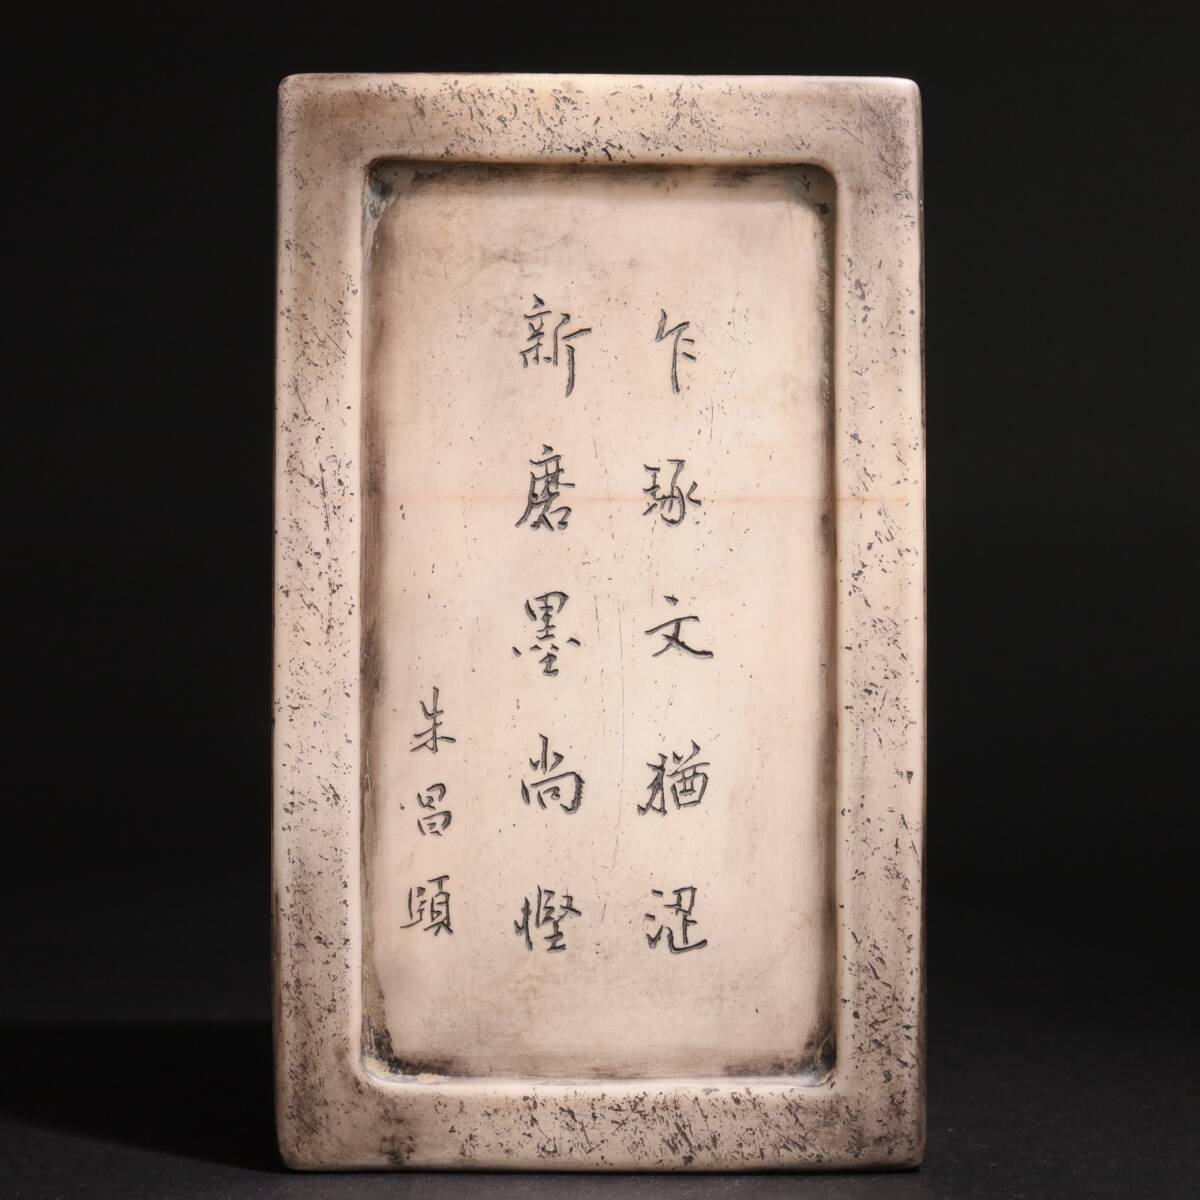 乍琢文猶涩
新磨墨尚慳
朱昌頤